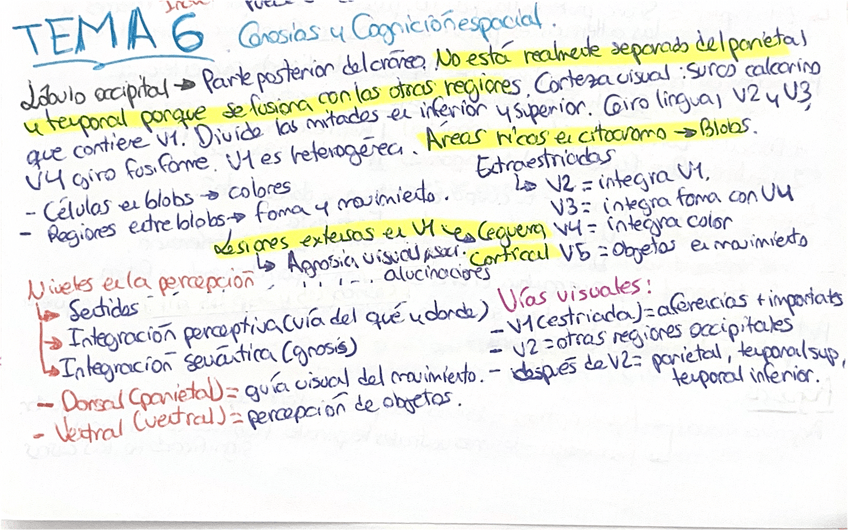 TEMA 6 Gnosias y Cognición espacial.
Lóbulo occipital → Parte posterior del cráneo. No está realmente separado del parietal
y temporal porque se fusiona con las otras regiones. Corteza visual: Surco calcarino
que contiene V1. Divide las mitades en inferior y superior. Giro lingual V2 y V3,
V4 giro fusiforme. V1 es heterogénea. Áreas ricas en citocromo → Blobs.
- Células en blobs → colores
- Regiones entre blobs → forma y movimiento.
Extraestriadas
↳ V2 = integra V1.
V3 = integra forma con V4
V4 = integra color
V5 = Objetos en movimiento
Lesiones extensas en V1 → Ceguera
Cortical
↳ Agnosia visual asoci.
alucinaciones
Niveles en la percepción
↳ Sentidos
→ Integración perceptiva (vía del qué y donde)
↳ Integración semántica (gnosis)
- Dorsal (parietal) = guía visual del movimiento.
- Ventral (ventral) = percepción de objetos.
Vías visuales:
- V1 (estriada) = aferencias + importantes
- V2 = otras regiones occipitales
- después de V2 = parietal, temporal sup,
temporal inferior.